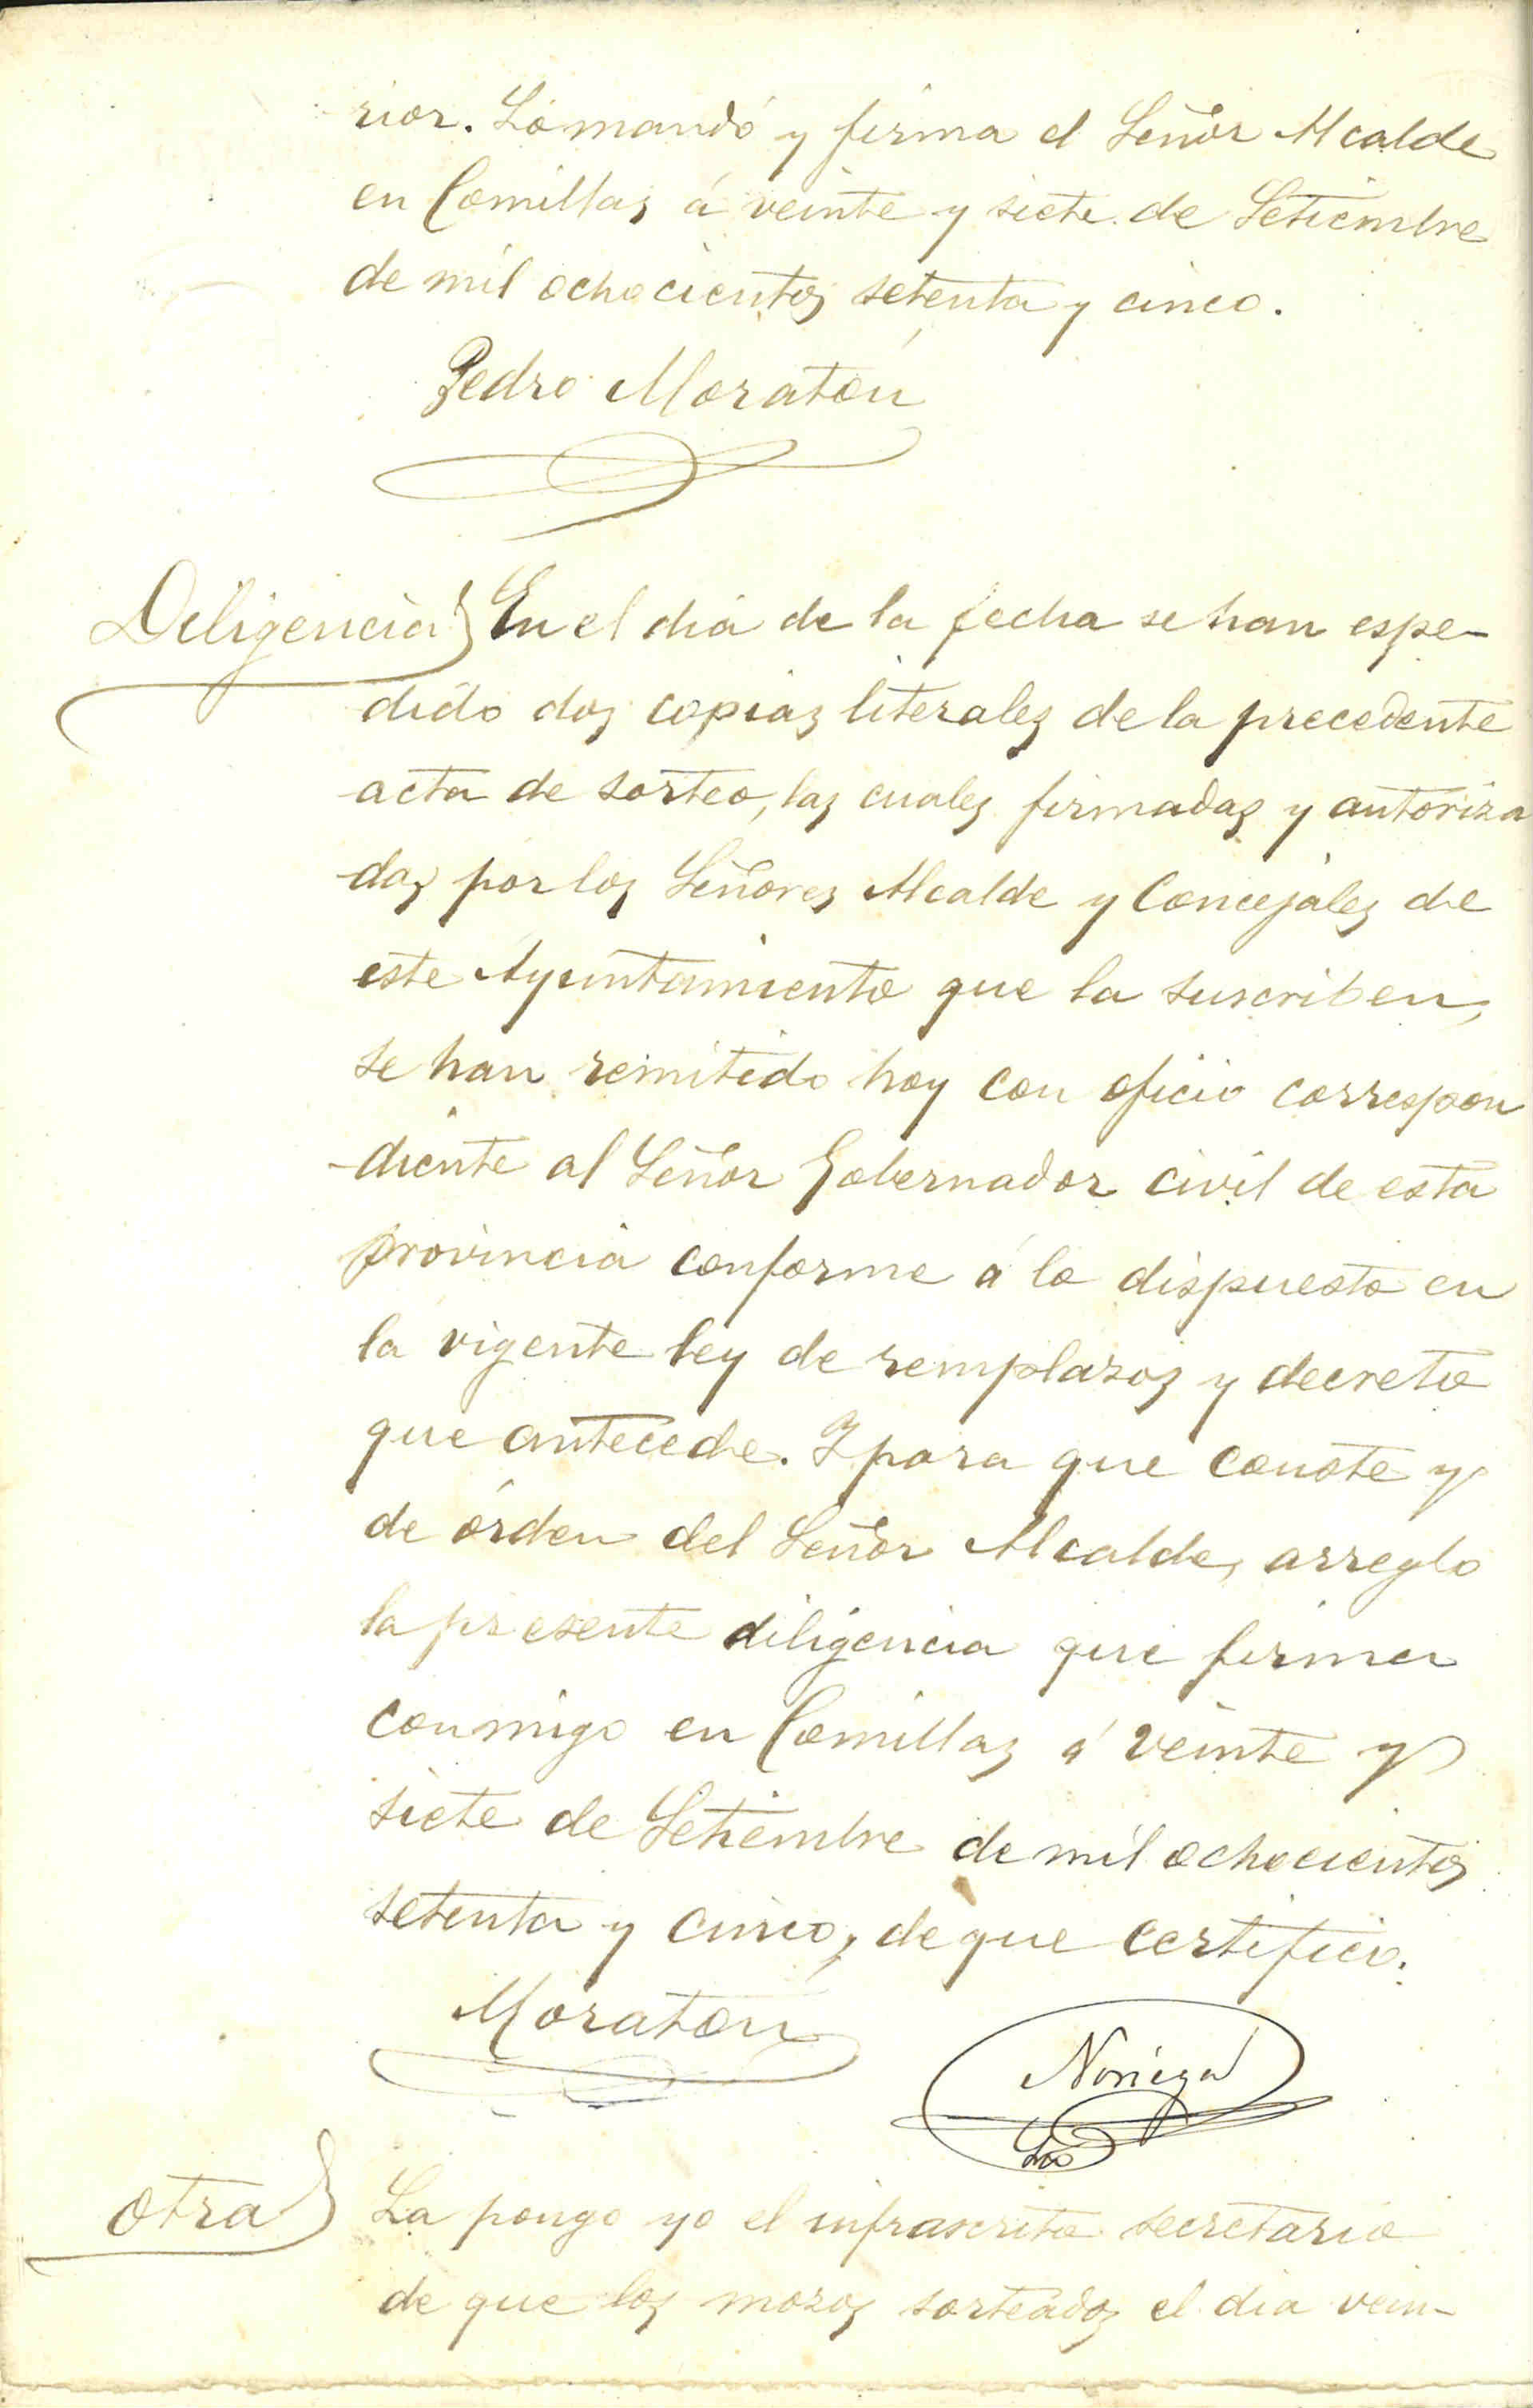 rior. Lo mandó y firma el Señor Alcalde
en Comillas á veinte y siete de Setiembre
de mil ochocientos setenta y cinco.
Pedro Moraton
Diligencia} En el dia de la fecha se han espe-
dido dos copias literales de la precedente
acta de sorteo, las cuales firmadas y autoriza
das por los Señores Alcalde y Concejales de
este Ayuntamiento que la suscriben,
se han remitido hoy con oficio correspon
diente al Señor Gobernador civil de esta
provincia conforme á lo dispuesto en
la vigente ley de remplasos y decreto
que antecede. Y para que conste y
de órden del Señor Alcalde, arreglo
la presente diligencia que firma
conmigo en Comillas á veinte y
siete de Setiembre de mil ochocientos
setenta y cinco, de que certifico.
Moraton
Noriega
Srio
Otra} La pongo yo el infrascrito secretario
de que los mosos sorteados el dia vein-